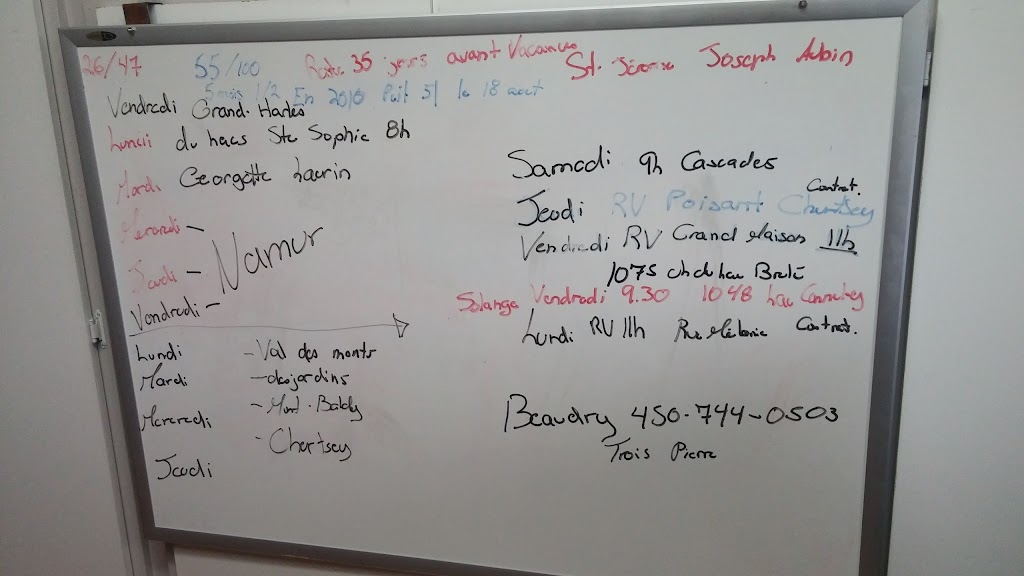 26/47 55/100 Reste 35 jours avant Vacances St. Jérome Joseph Aubin
5 mois 1/2 En 2010 Puit 51 le 18 aout
Vendredi Grand.
Lundi du hacs Ste Sophie 8h
Mardi Georgette Laurin
Mercredi –
Jeudi – Namur
Vendredi –
Lundi - Val des monts
Mardi - desjardins
Mercredi - Mont.
- Chertsey
Jeudi
Samedi 9h Cascades
Jeudi RV Poisant Chertsey Contrat.
Vendredi RV Grand Maison 11h
1075 ch du Lac Brulé
Solange Vendredi 9.30 1048 Lac
Lundi RV 11h Rue Mélanie Contrat.
Beaudry 450-744-0503
Trois Pierre